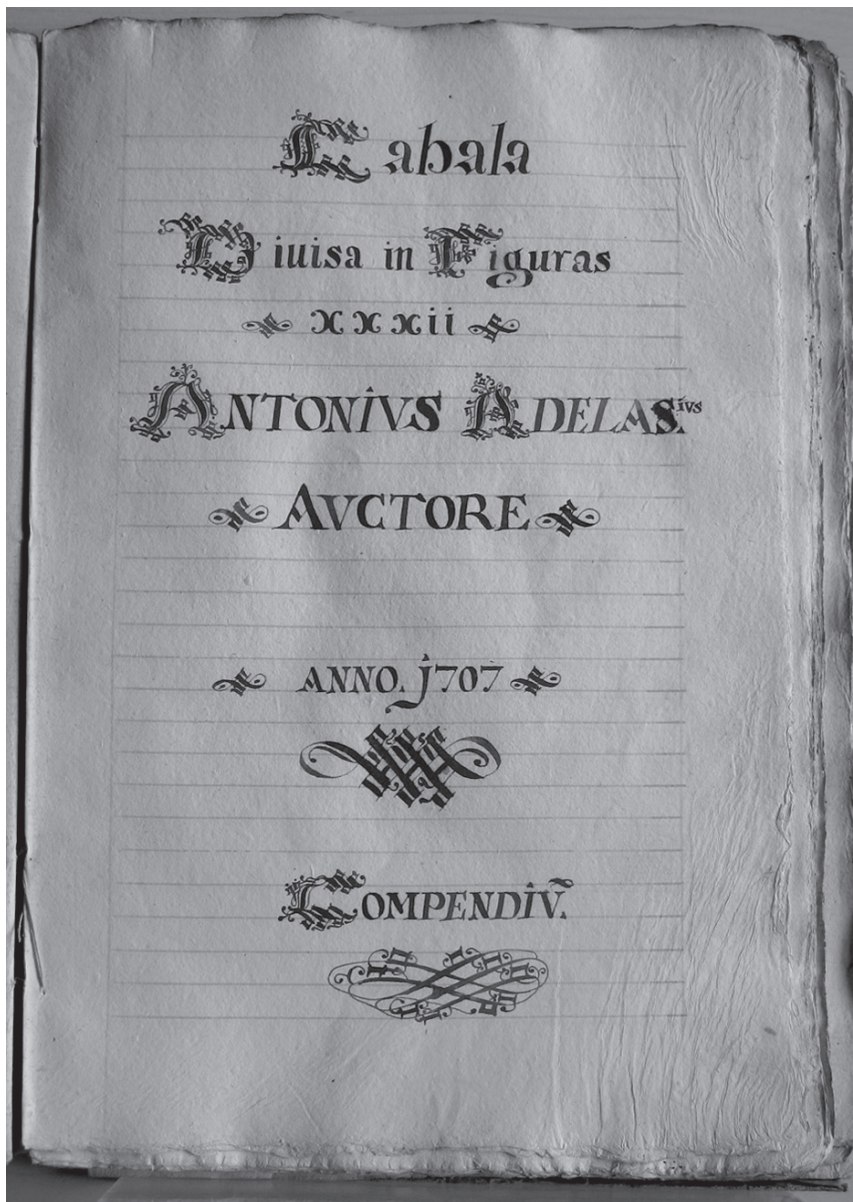 Cabala
Diuisa in Figuras
xxxii
ANTONIVS ADELAS.ivs
AVCTORE
ANNO. j707
COMPENDIṼ.